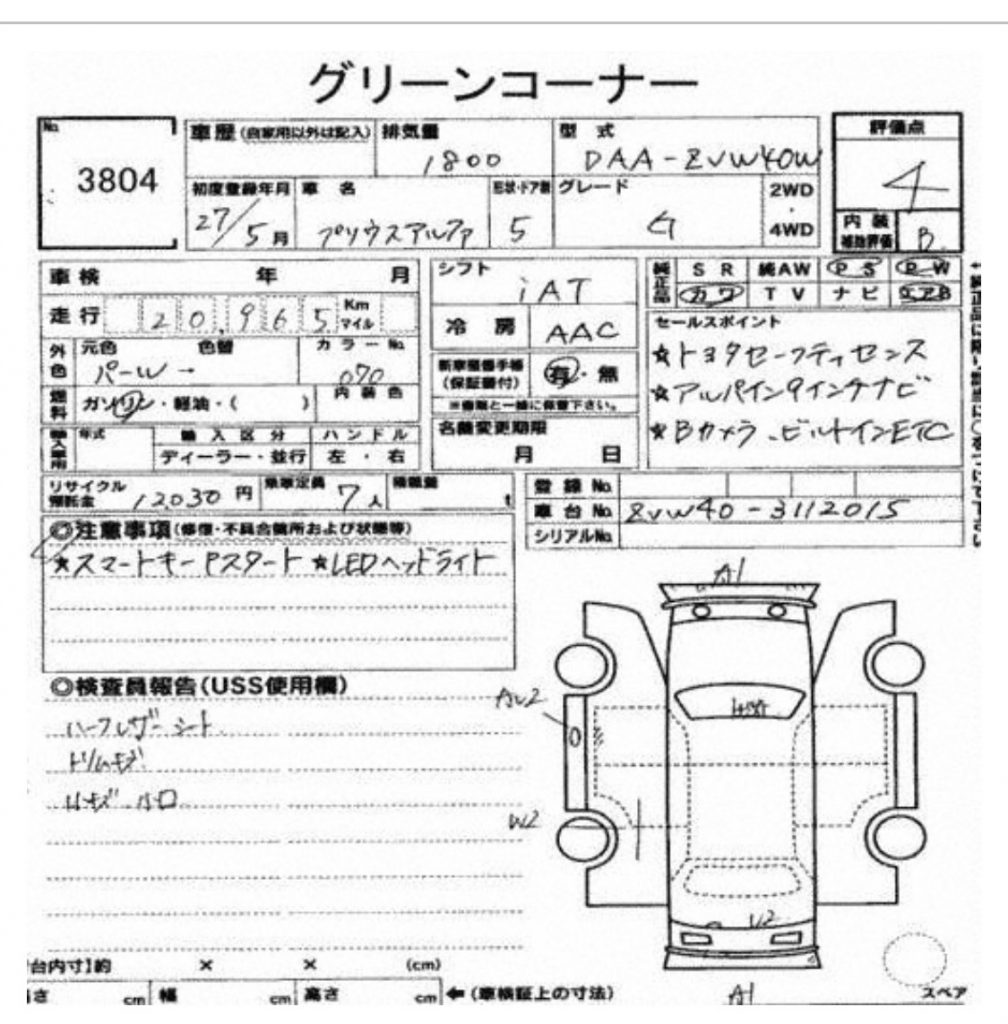 グリーンコーナー
No. 3804
車歴(自家用以外は記入) 排気量 1800 型式 DAA-ZVW40W 評価点 4
初度登録年月 27/5月 車名 プリウスアルファ 形状・ドア数 5 グレード G 2WD・4WD 内装補助評価 B
車検 年 月 シフト iAT 純正品 SR 純AW PS PW
走行 20,965 Km マイル 冷房 AAC カワ TV ナビ エアB
外色 元色 パール 色替 カラーNo. 070
新車整備手帳(保証書付) 有・無
※車検と一緒に保管下さい。
セールスポイント
★トヨタセーフティセンス
★アルパイン9インチナビ
★Bカメラ、ビルトインETC
燃料 ガソリン・軽油・( ) 内装色
輸入車用 年式 輸入区分 ハンドル 名義変更期限
ディーラー・並行 左・右 月 日
リサイクル預託金 12,030円 乗車定員 7人 積載量 t 登録No.
車台No. ZVW40-3112015
シリアルNo.
◎注意事項(修復・不具合箇所および状態等)
★スマートキーPスタート ★LEDヘッドライト
A1
◎検査員報告(USS使用欄)
ハーフレザーシート
AU2
ドリムキズ
W2
U2
台内寸】約 × × (cm)
さ cm 幅 cm 高さ cm ←(車検証上の寸法)
A1
スペア